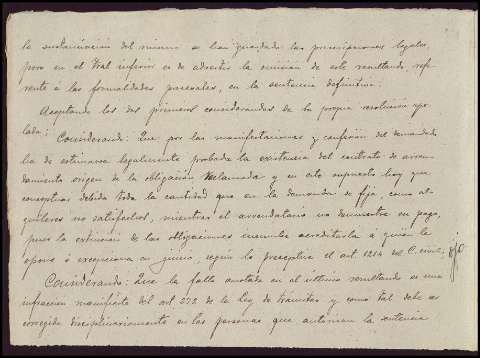 la sustanciación del mismo se han guardado las prescripciones legales,
pero en el Tral inferior es de advertir la omisión de este resultando refe-
rente a las formalidades procesales, en la sentencia definitiva.
Aceptando los dos primeros considerandos de la propia resolución ape-
lada:
Considerando: Que por las manifestaciones y confesión del demandado
ha de estimarse legalmente probada la existencia del contrato de arren-
damiento origen de la obligación reclamada y en este supuesto hay que
conceptuar debida toda la cantidad que en la demanda se fija, como al-
quileres no satisfechos, mientras el arrendatario no demuestre su pago,
pues la extinción de las obligaciones incumbe acreditarla á quién la
opone ó excepciona en juicio, según lo preceptua el art 1214 del C. civil;
Considerando: Que la falta anotada en el último resultando es una
infracción manifiesta del art 372 de la Ley de tramites y como tal debe ser
corregida disciplinariamente en las personas que autorizan la sentencia